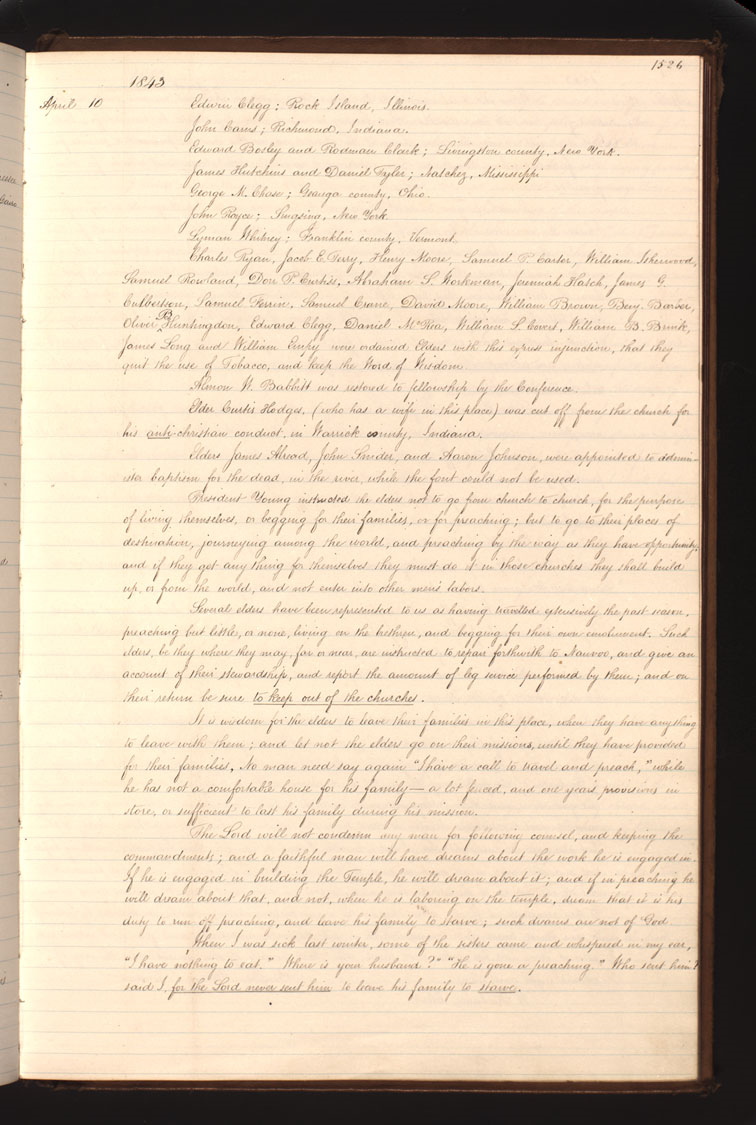 1526
1843
April 10 Edwin Clegg; Rock Island, Illinois.
John Cairns; Richmond, Indiana.
Edward Bosley and Rodman Clark; Livingston county, New York.
James Hutchins and Daniel Tyler; Natchez, Mississippi
George M. Chase; Geauga county, Ohio.
John Royce; New York.
Lyman Whitney; Franklin county, Vermont.
Charles Ryan, Jacob E. Terry, Henry Moore, Samuel P. Carter, William Isherwood,
Samuel Rowland, Don P. Curtiss, Abraham S. Workman, Jeremiah Hatch, James G.
Culberson, Samuel Ferrin, Samuel Crane, David Moore, William Brown, Benj. Barber,
Oliver B. Huntingdon, Edward Clegg, Daniel McRea, William L. Covert, William B. Brink,
James Long and William Empy were ordained Elders with this express injunction, that they
quit the use of Tobacco, and keep the Word of Wisdom.
Almon W. Babbitt was restored to fellowship by the Conference.
Elder Curtis Hodges, (who has a wife in this place) was cut off from the church for
his anti-christian conduct, in Warrick county, Indiana.
Elders James Alread, John Snider, and Aaron Johnson, were appointed to admin-
ister baptism for the dead, in the river, while the font could not be used.
President Young instructed the elders not to go from church to church, for the purpose
of living themselves, or begging for their families, or for preaching; but to go to their places of
destination, journeying among the world, and preaching by the way as they have opportunity;
and if they got any thing for themselves they must do it in those churches they shall build
up, or from the world, and not enter into other men's labors.
Several elders have been represented to us as having travelled extensively the past season,
preaching but little, or none, living on the brethren, and begging for their own emolument. Such
elders, be they where they may, far or near, are instructed to repair forthwith to Nauvoo, and give an
account of their stewardship, and report the amount of leg service performed by them; and on
their return be sure to keep out of the churches.
It is wisdom for the elders to leave their families in this place, when they have any thing
to leave with them; and let not the elders go on their missions, until they have provided
for their families. No man need say again "I have a call to travel and preach," while
he has not a comfortable house for his family — a lot fenced, and one year's provisions in
store, or sufficient to last his family during his mission.
The Lord will not condemn any man for following counsel, and keeping the
commandments; and a faithful man will have dreams about the work he is engaged in.
If he is engaged in building the Temple, he will dream about it; and if in preaching he
will dream about that, and not, when he is laboring on the temple, dream that it is his
duty to run off preaching, and leave his family to starve; such dreams are not of God
When I was sick last winter, some of the sisters came and whispered in my ear,
"I have nothing to eat." Where is your husband?" "He is gone a preaching." Who sent him?
said I, for the Lord never sent him to leave his family to starve.